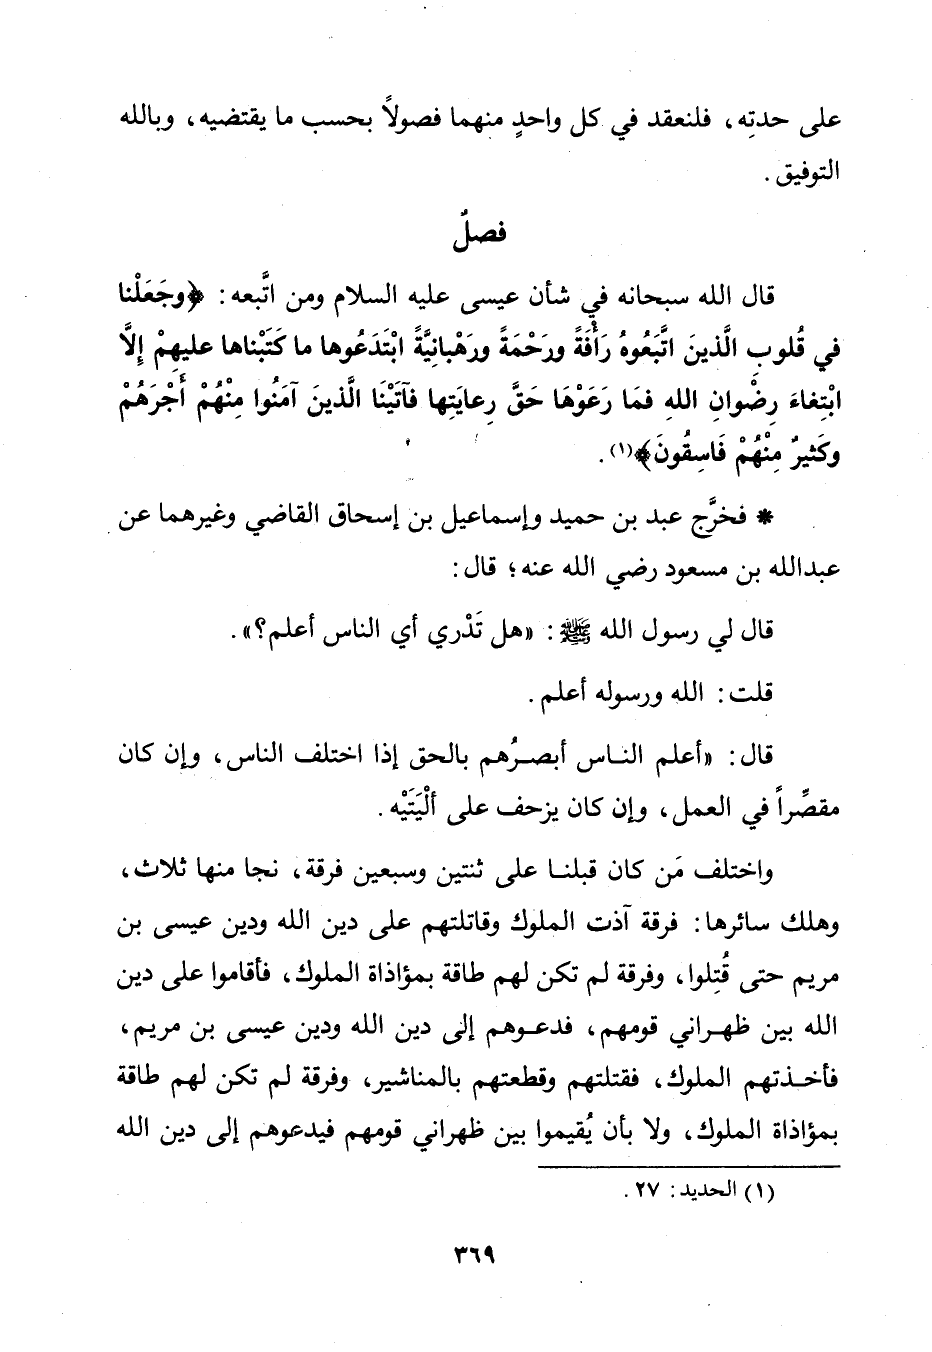 على حدتِه، فلنعقد في كل واحدٍ منهما فصولاً بحسب ما يقتضيه، وبالله
التوفيق.
فصلٌ
قال الله سبحانه في شأن عيسى عليه السلام ومن اتَّبعه: ﴿وجَعَلْنا
في قُلوبِ الَّذينَ اتَّبَعُوهُ رَأْفَةً ورَحْمَةً ورَهْبانِيَّةً ابْتَدَعُوها ما كَتَبْناها عليهِمْ إلَّا
ابْتِغاءَ رِضْوانِ اللهِ فمَا رَعَوْهَا حَقَّ رِعايَتِها فآتَيْنَا الَّذينَ آمَنُوا مِنْهُمْ أَجْرَهُمْ
وكَثيرٌ مِنْهُمْ فَاسِقُونَ﴾(١).
* فخرَّج عبد بن حميد وإسماعيل بن إسحاق القاضي وغيرهما عن
عبدالله بن مسعود رضي الله عنه؛ قال:
قال لي رسول الله ﷺ: «هل تَدْري أي الناس أعلم؟».
قلت: الله ورسوله أعلم.
قال: «أعلم الناس أبصرُهم بالحق إذا اختلف الناس، وإن كان
مقصِّراً في العمل، وإن كان يزحف على ألْيَتَيْه.
واختلف مَن كان قبلنا على ثنتين وسبعين فرقة، نجا منها ثلاث،
وهلك سائرها: فرقة آذت الملوك وقاتلتهم على دين الله ودين عيسى بن
مريم حتى قُتِلوا، وفرقة لم تكن لهم طاقة بمؤاذاة الملوك، فأقاموا على دين
الله بين ظهراني قومهم، فدعوهم إلى دين الله ودين عيسى بن مريم،
فأخذتهم الملوك، فقتلتهم وقطعتهم بالمناشير، وفرقة لم تكن لهم طاقة
بمؤاذاة الملوك، ولا بأن يُقيموا بين ظهراني قومهم فيدعوهم إلى دين الله
(١) الحديد: ٢٧.
٣٦٩